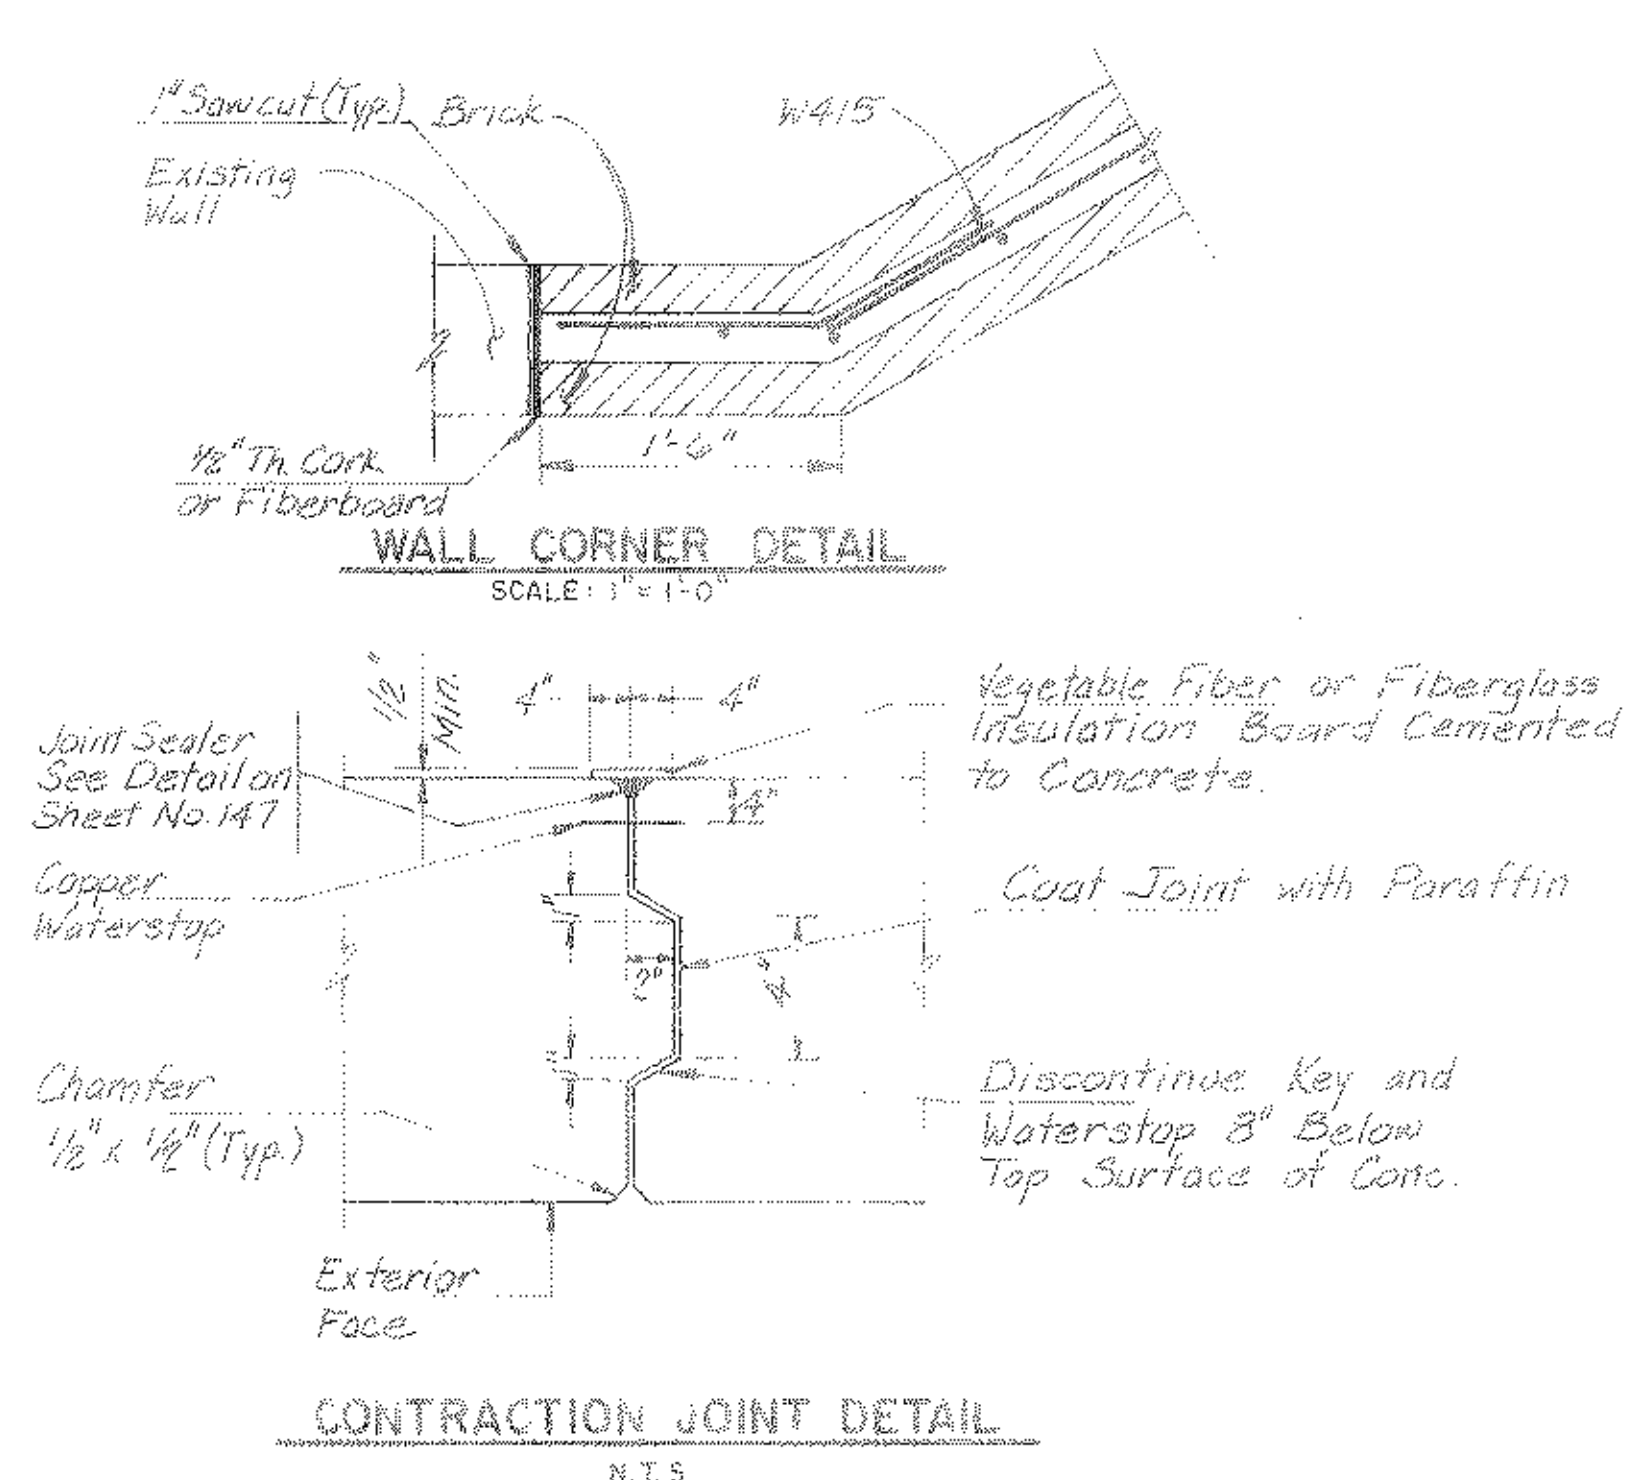 1" Sawcut (Typ.)
Brick
W415
Existing
Wall
1/2" Th. Cork
or Fiberboard
1'-6"
WALL CORNER DETAIL
SCALE: 1" = 1'-0"
1/2"
Min.
4"
4"
Vegetable Fiber or Fiberglass
Insulation Board Cemented
to Concrete.
Joint Sealer
See Detail on
Sheet No. 147
Copper
Waterstop
1"
2"
4"
Coat Joint with Paraffin
1"
Chamfer
1/2" x 1/2" (Typ.)
Discontinue Key and
Waterstop 8" Below
Top Surface of Conc.
Exterior
Face
CONTRACTION JOINT DETAIL
N.T.S